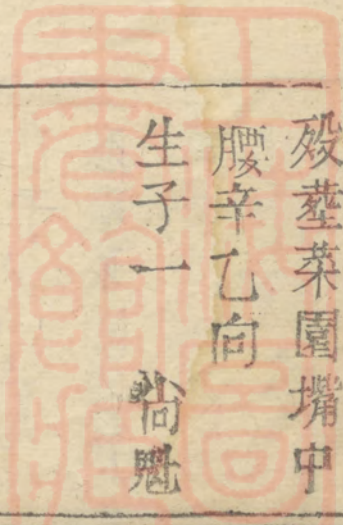 殁塟菜園塆中
腰辛乙向
生子一 尙魁